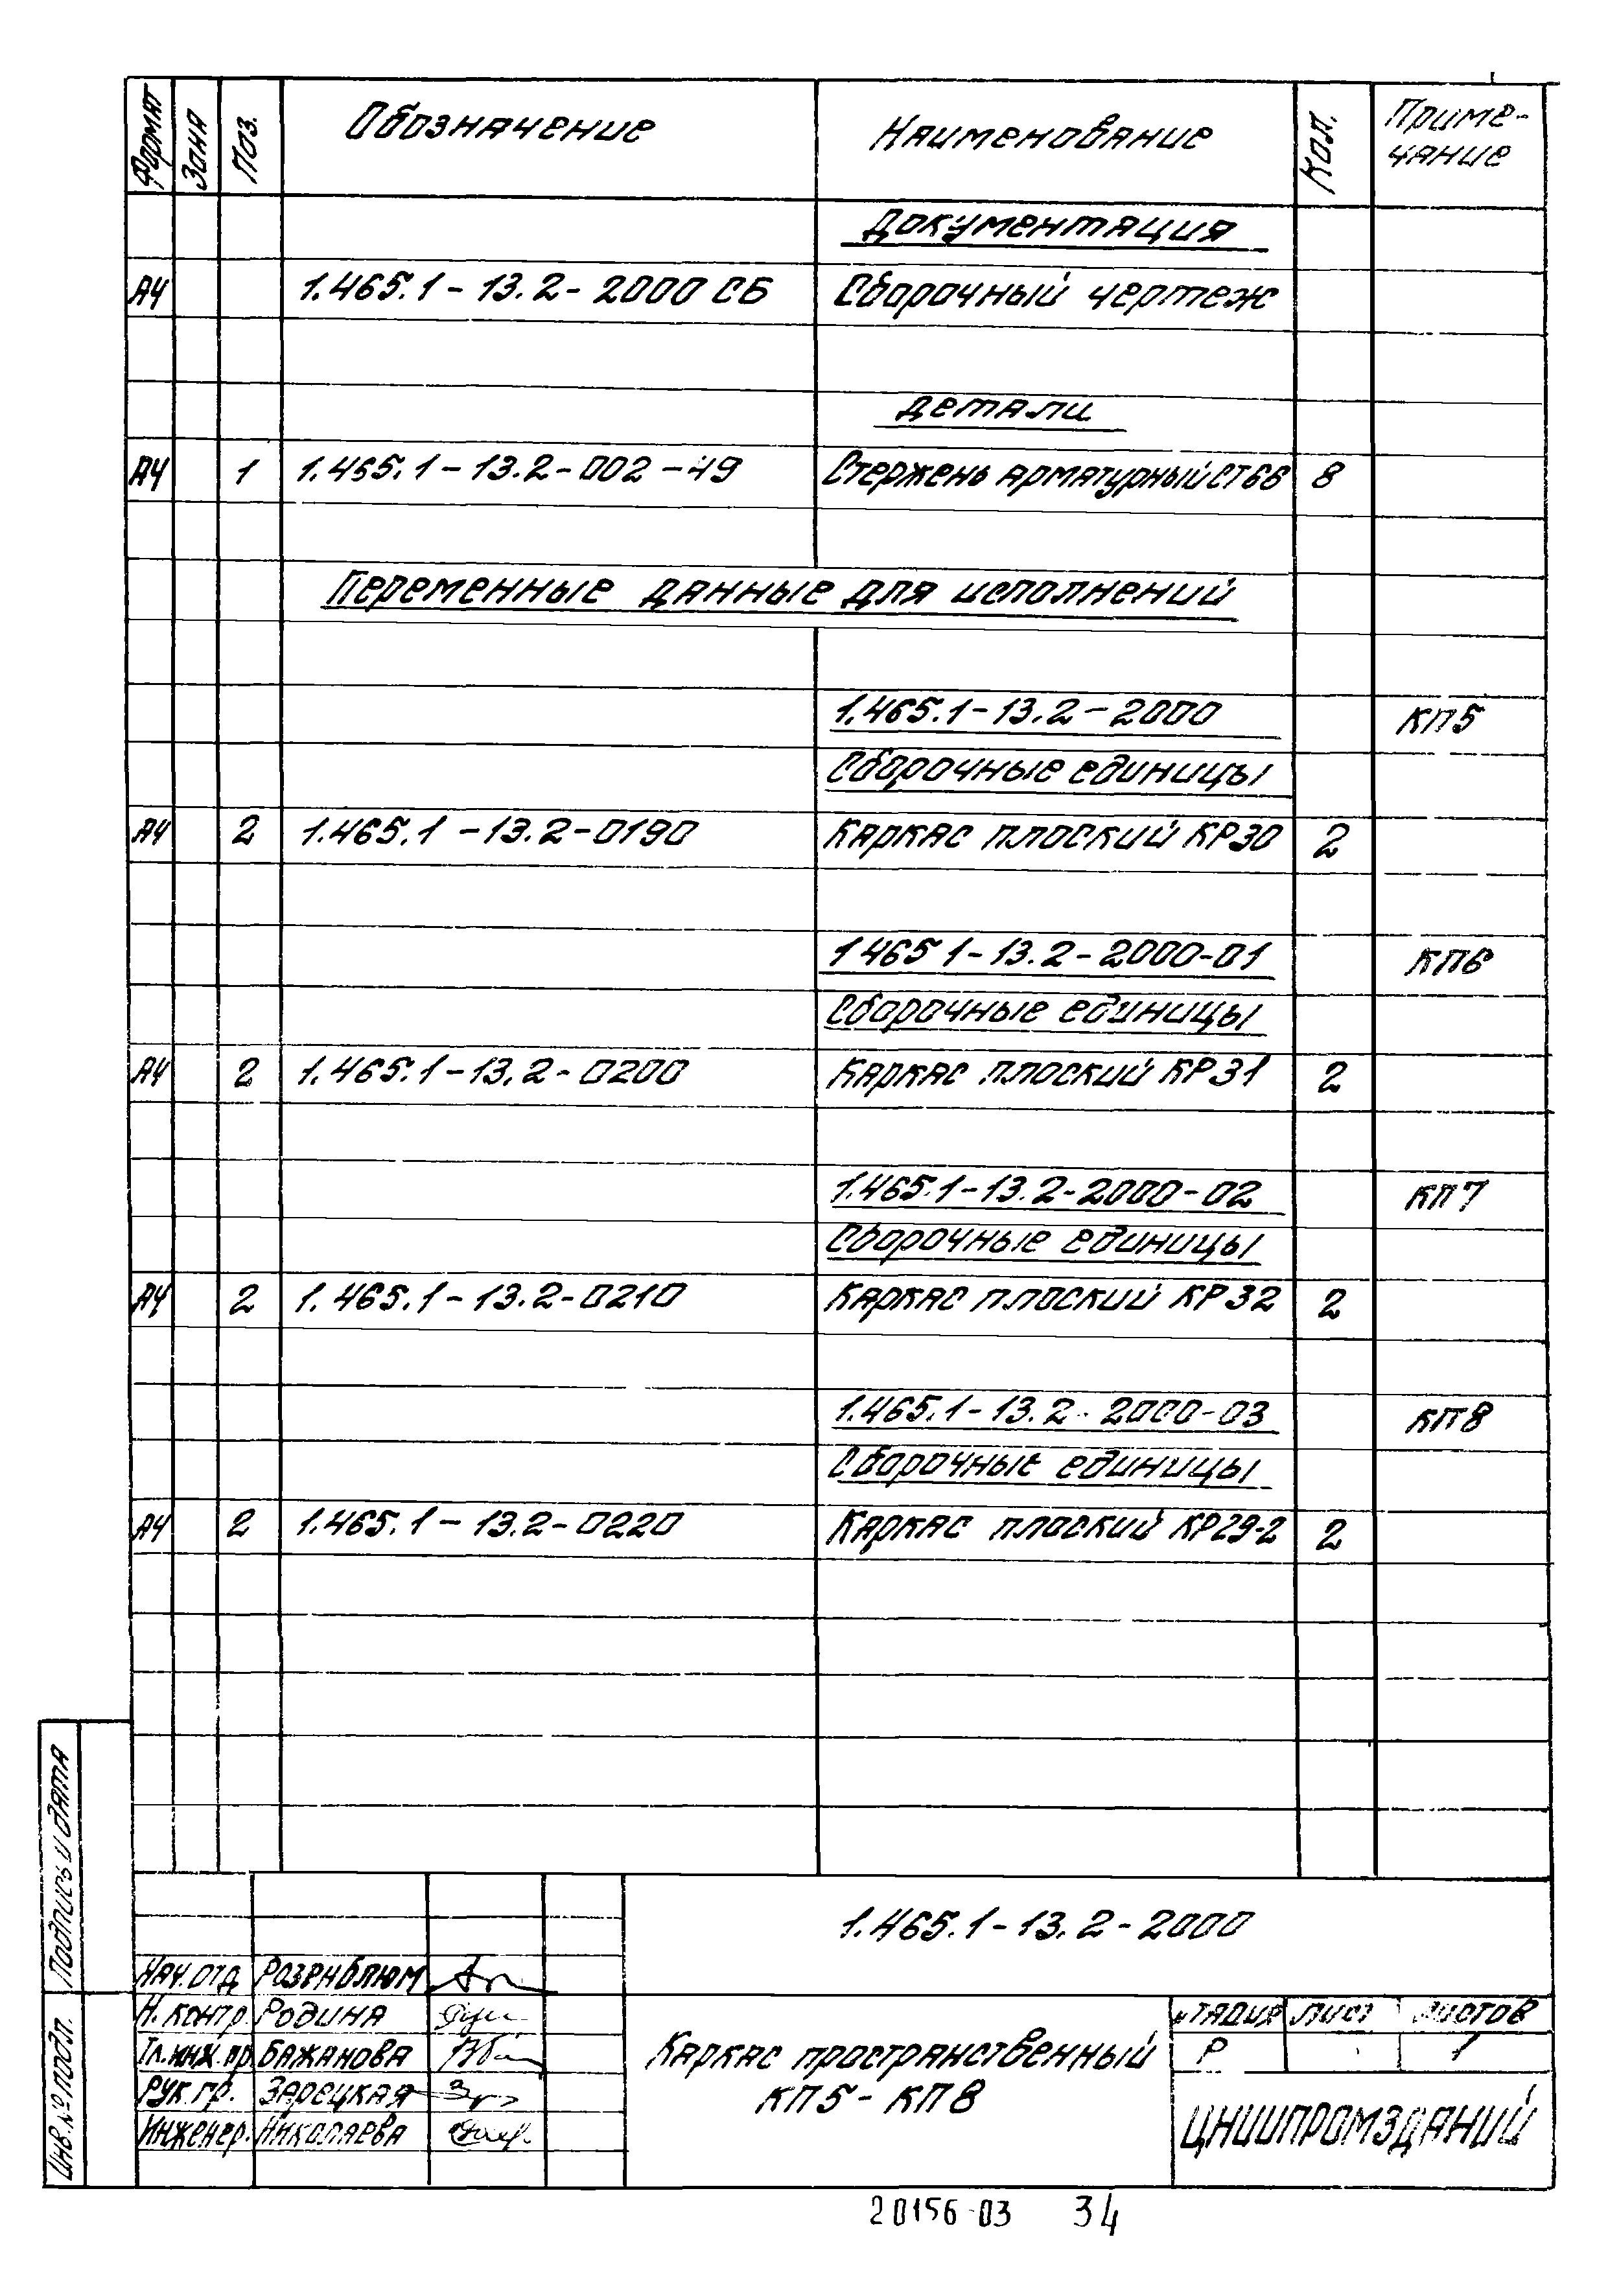 Формат Зона Поз. Обозначение Наименование Кол. Приме-
чание
Документация
А4 1.465.1-13.2-2000 СБ Сборочный чертеж
Детали
А4 1 1.465.1-13.2-002-49 Стержень арматурный СТ66 8
Переменные данные для исполнений
1.465.1-13.2-2000 КП5
Сборочные единицы
А4 2 1.465.1-13.2-0190 Каркас плоский КР30 2
1 465 1-13.2-2000-01 КП6
Сборочные единицы
А4 2 1.465.1-13.2-0200 Каркас плоский КР31 2
1.465.1-13.2-2000-02 КП7
Сборочные единицы
А4 2 1.465.1-13.2-0210 Каркас плоский КР32 2
1.465.1-13.2-2000-03 КП8
Сборочные единицы
А4 2 1.465.1-13.2-0220 Каркас плоский КР29-2 2
Подпись и дата
Инв.№ подл.
1.465.1-13.2-2000
Нач.отд Розенблюм
Н.контр. Родина
Гл.инж.пр. Бажанова
Рук.гр. Зарецкая
Инженер. Николаева
Каркас пространственный
КП5-КП8
Стадия Лист Листов
Р 1
ЦНИИПРОМЗДАНИЙ
20156-03 34